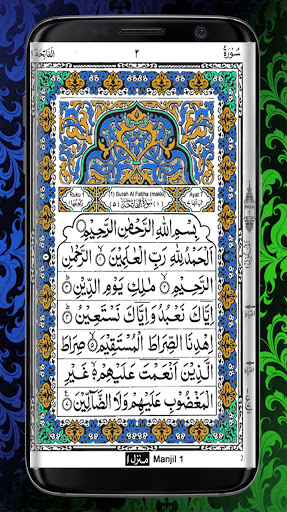 سُوْرَةُ ٢ اَلْفَاتِحَة
Ruku (1) Surah Al Fatiha (makki) Ayat
بِسْمِ اللّٰهِ الرَّحْمٰنِ الرَّحِيْمِ
اَلْحَمْدُ لِلّٰهِ رَبِّ الْعٰلَمِيْنَ ۝ الرَّحْمٰنِ
الرَّحِيْمِ ۝ مٰلِكِ يَوْمِ الدِّيْنِ ۝
اِيَّاكَ نَعْبُدُ وَاِيَّاكَ نَسْتَعِيْنُ ۝
اِهْدِنَا الصِّرَاطَ الْمُسْتَقِيْمَ ۝ صِرَاطَ
الَّذِيْنَ اَنْعَمْتَ عَلَيْهِمْ ۙ غَيْرِ
الْمَغْضُوْبِ عَلَيْهِمْ وَلَا الضَّآلِّيْنَ ۝
منزل ١ Manjil 1
2